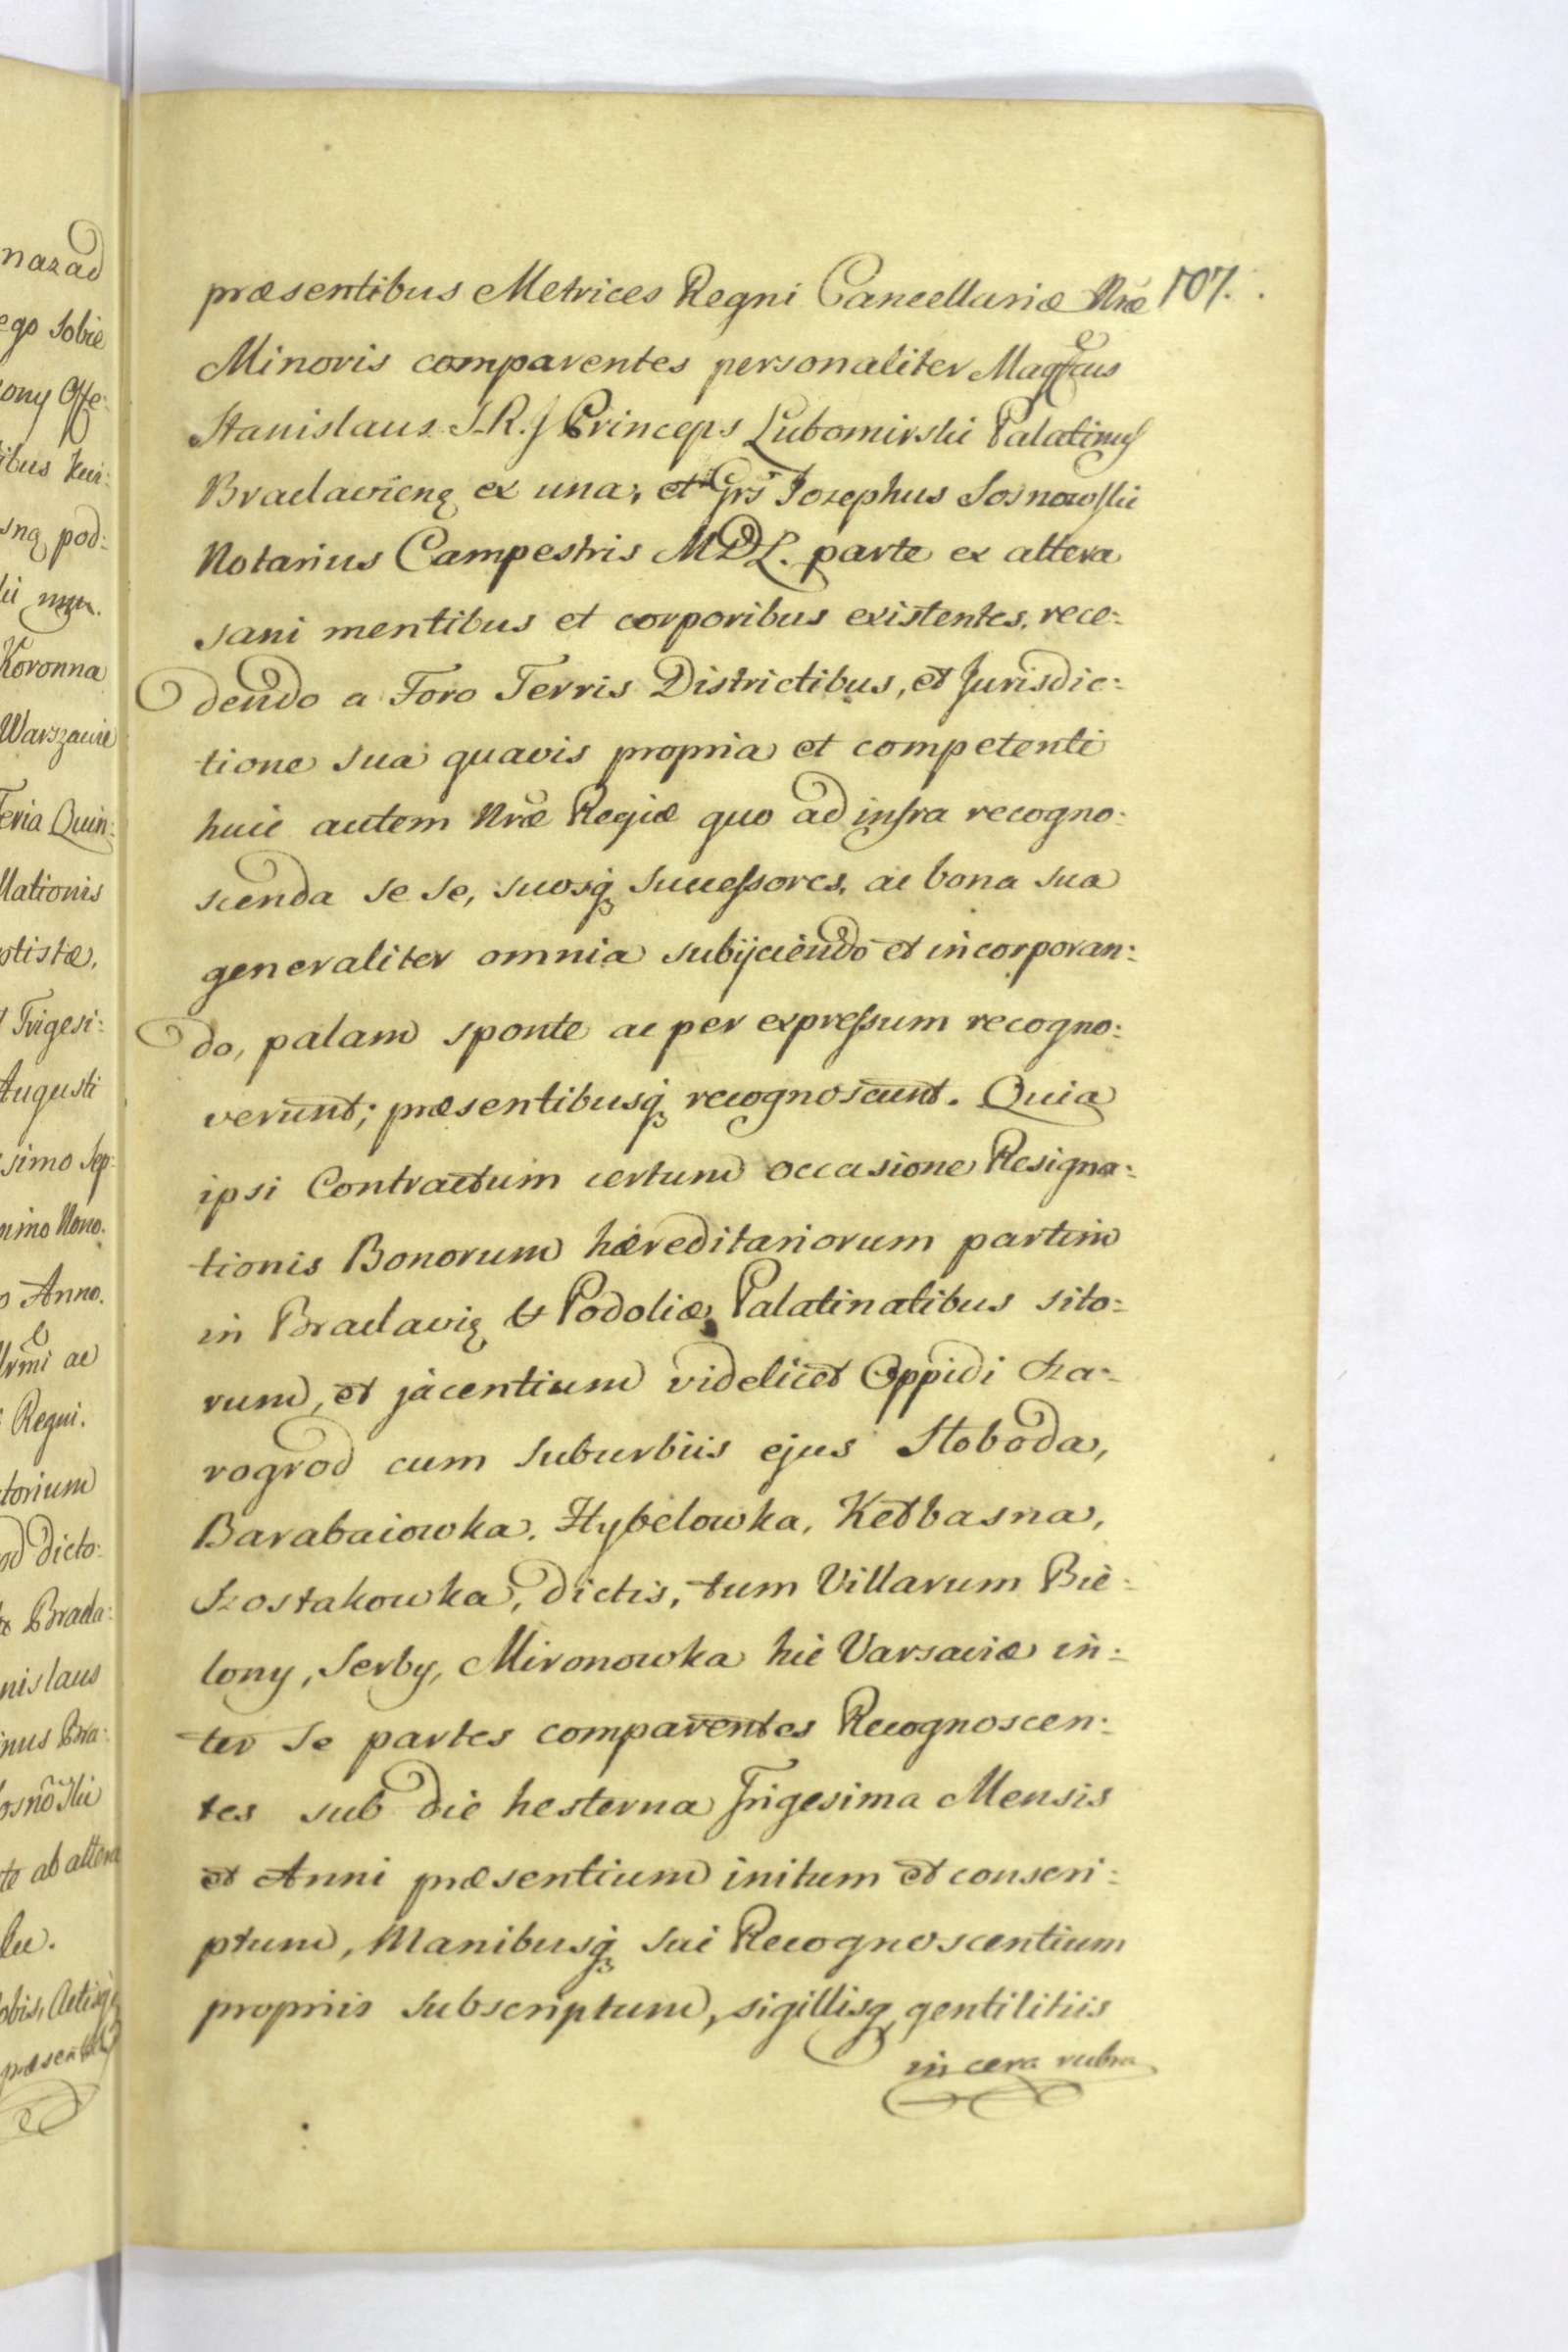 nazad
ego Sobie
ony Offe:
ibus
sną pod:
Koronna
Warszawie
Feria Quin:
llationis
ptistæ,
Trigesi:
Augusti
simo Sep:
Nono.
o Anno.
ac
Regni.
torium
od dicto:
nislaus
inus Bra:
te ab altera
obis, Actisq̃
præsenti
præsentibus Metrices Regni Cancellariæ Nræ 107.
Minoris comparentes personaliter Magfcus
Stanislaus S.R.J Princeps Lubomirski Palatinus
Braclavienę ex una, et Grs̃ Jozephus Sosnowski
Notarius Campestris MDL. parte ex altera
sani mentibus et corporibus existentes, rece:
dendo a Foro Terris Districtibus, et Jurisdic:
tione sua quavis propria et competenti
huic autem Nræ Regiæ quo ad infra recogno:
scenda se se, suosq̃ Successores, ac bona sua
generaliter omnia subijciendo et incorporan:
do, palam sponte ac per expressum recogno:
verunt; præsentibusq̃ recognoscunt. Quia
ipsi Contractum certum occasione Resigna:
tionis Bonorum hæreditariorum partim
in Braclavię & Podoliæ Palatinatibus sito:
rum, et jacentium videlicet Oppidi Sza:
rogrod cum Suburbiis ejus Słoboda,
Barabaiowka, Hybelowka, Kełbasna,
Szostakowka, dictis, tum Villarum Bie:
lony, Serby, Mironowka hic Varsaviæ in:
ter se partes comparentes Recognoscen:
tes sub die hesterna Trigesima Mensis
et Anni præsentium initum et conscri:
ptum, Manibusq̃ sui Recognoscentium
propriis subscriptum, sigillisq̃ gentilitiis
in cera rubra